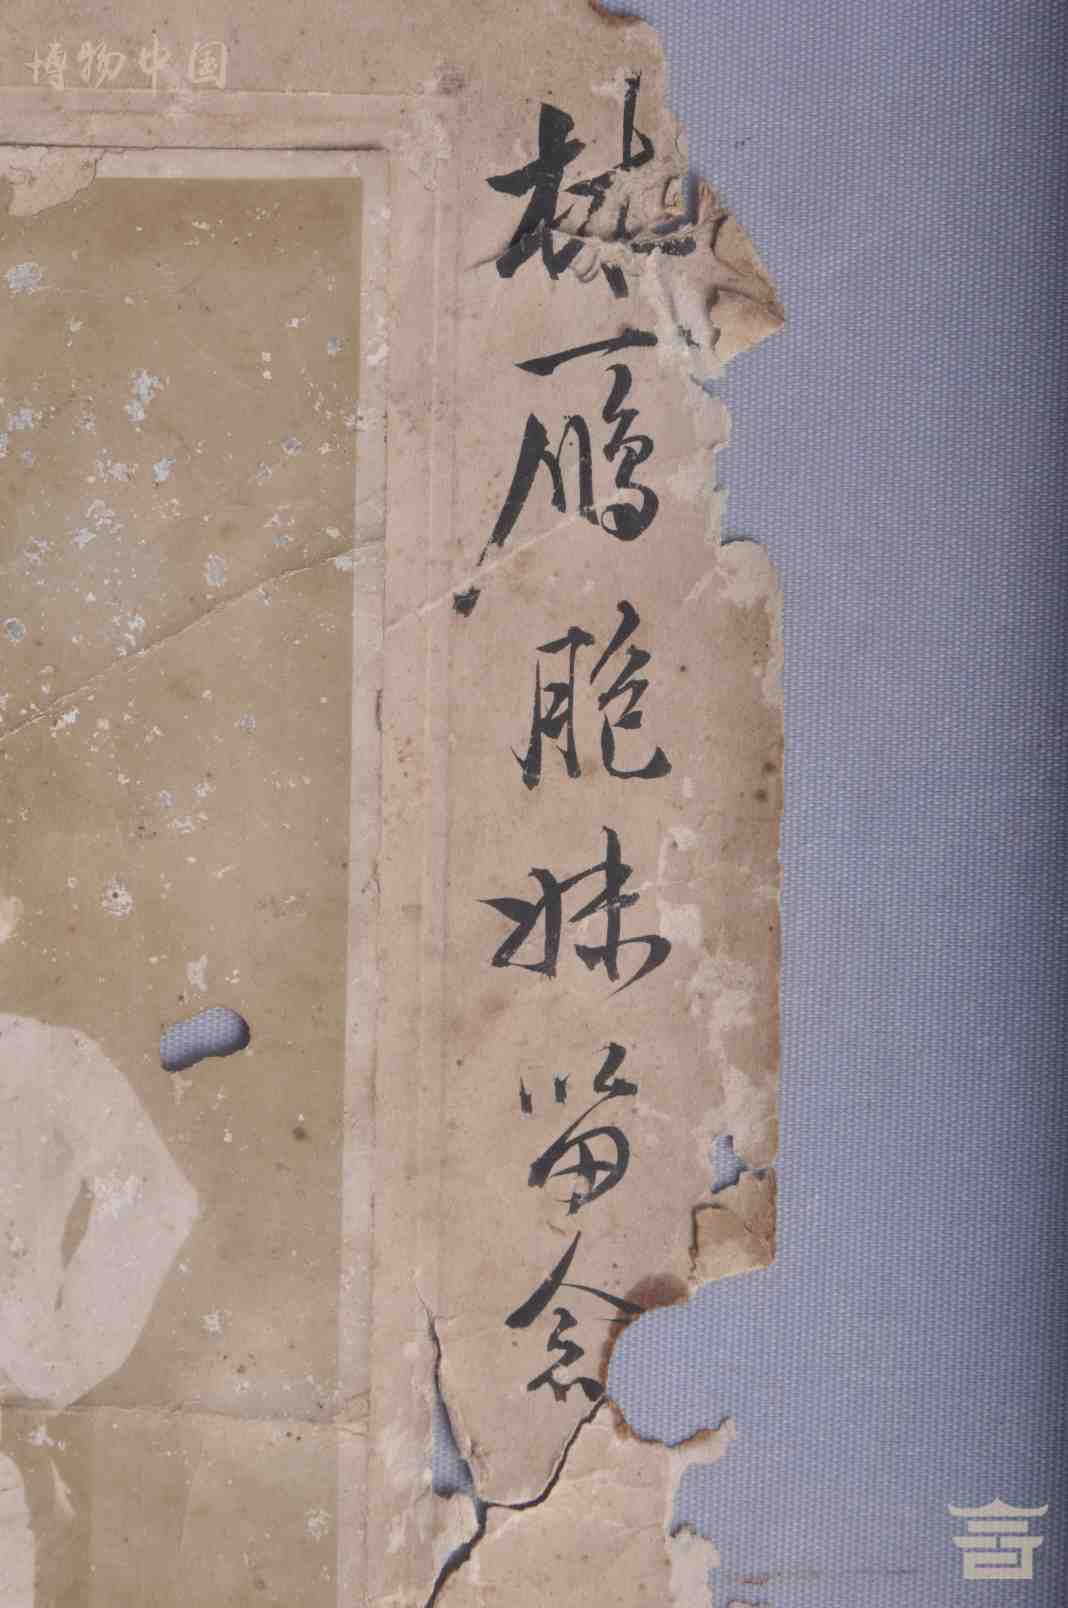 博物中国
鴈胞妹留念